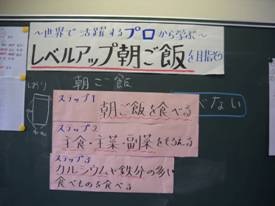 ～世界で活躍するプロから学ぶ～
レベルアップ朝ご飯を目指そう
朝ご飯
ステップ1
朝ご飯を食べる
べない
ステップ2
主食・主菜・副菜をそろえる
ステップ3
カルシウムや鉄分の多い
食べものを食べる